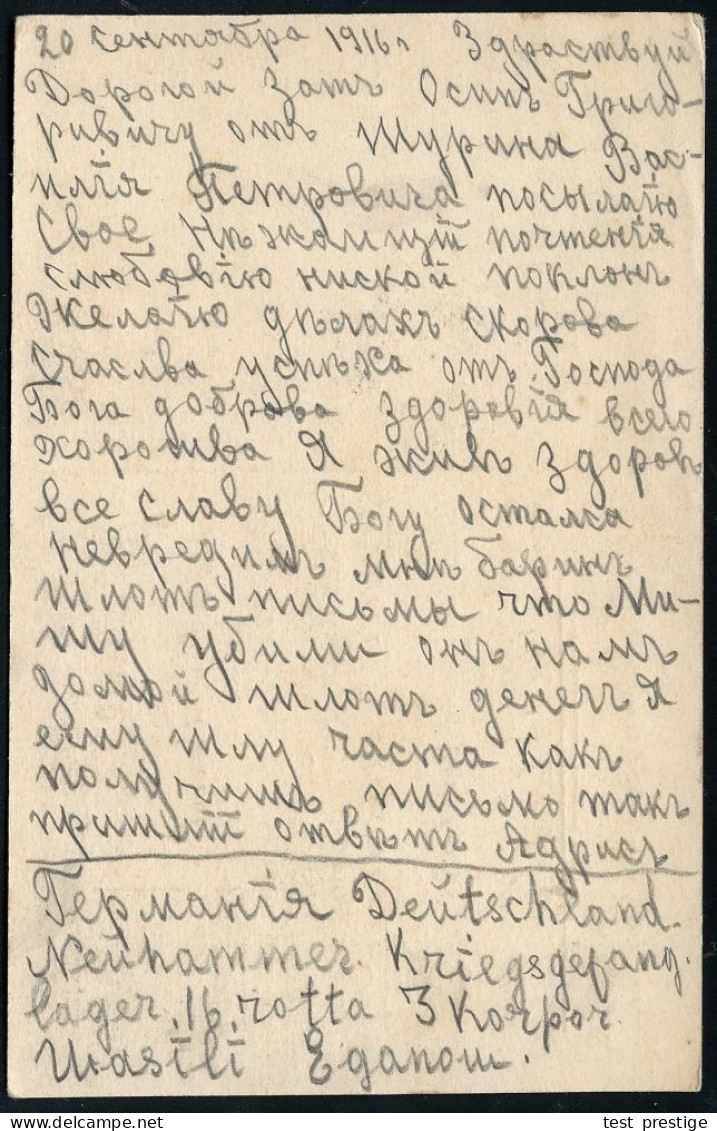 20 сентября 1916 г Здраствуй
Дорогой Зать Осипъ Григо-
ривичу отъ Шурина Вас-
илія Петровича посылаію
Свое, Нѣжаищій почтенія
слюбовію ниской поклонъ
Желаію дѣлахъ скорова
счаслва успѣха отъ Господа
Бога доброва здоровія всего
хорошва Я живъ здоровъ
все славу Богу остался
невредимъ мнѣ баринъ
шлотъ письмы что Ми-
шу убили онъ намъ
домой шлотъ денегъ Я
ему шлу часта какъ
получишъ письмо такъ
пришлій отвѣтъ Адрисъ
Германія Deütschland.
Neühammer. Kriegsgefang.
lager. 16, rotta 3 Korpor.
Wasili Edanow.
test prestige